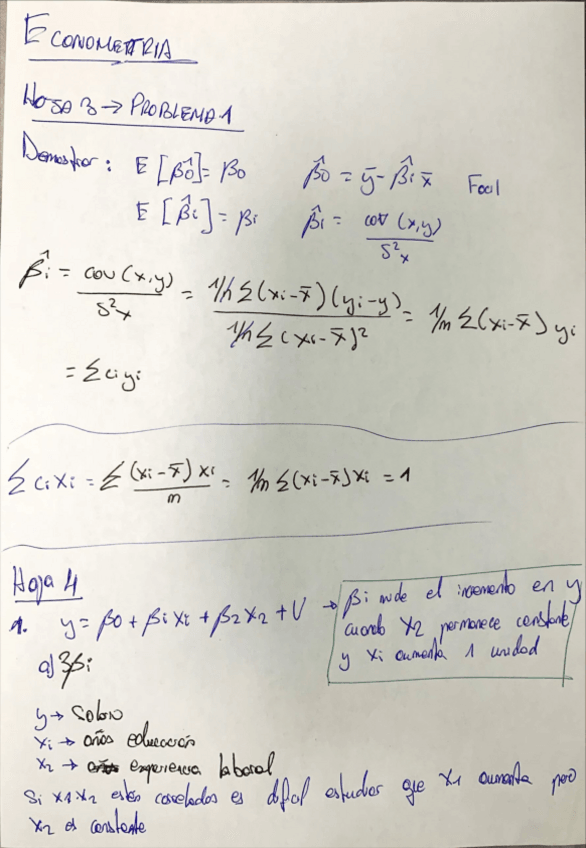 ECONOMETRIA
HOJA 3 → PROBLEMA 1
Demostrar: E[β̂0] = β0    β̂0 = ȳ - β̂i x̄    Facil
E[β̂i] = βi    β̂i = cov(x,y) / S²x
β̂i = cov(x,y) / S²x = 1/n Σ(xi-x̄)(yi-y) / 1/n Σ(xi-x̄)² = 1/m Σ(xi-x̄) yi
= Σciyi
ΣciXi = Σ (xi-x̄)xi / m = 1/m Σ(xi-x̄)xi = 1
Hoja 4
1. y = β0 + βiXi + β2X2 + U → βi mide el incremento en y
cuando X2 permanece constante
y Xi aumenta 1 unidad
a) 3βi
y → Salario
xi → años educación
x2 → experiencia laboral
Si x1 x2 están correlados es dificil estudiar que x1 aumenta pero
x2 es constante